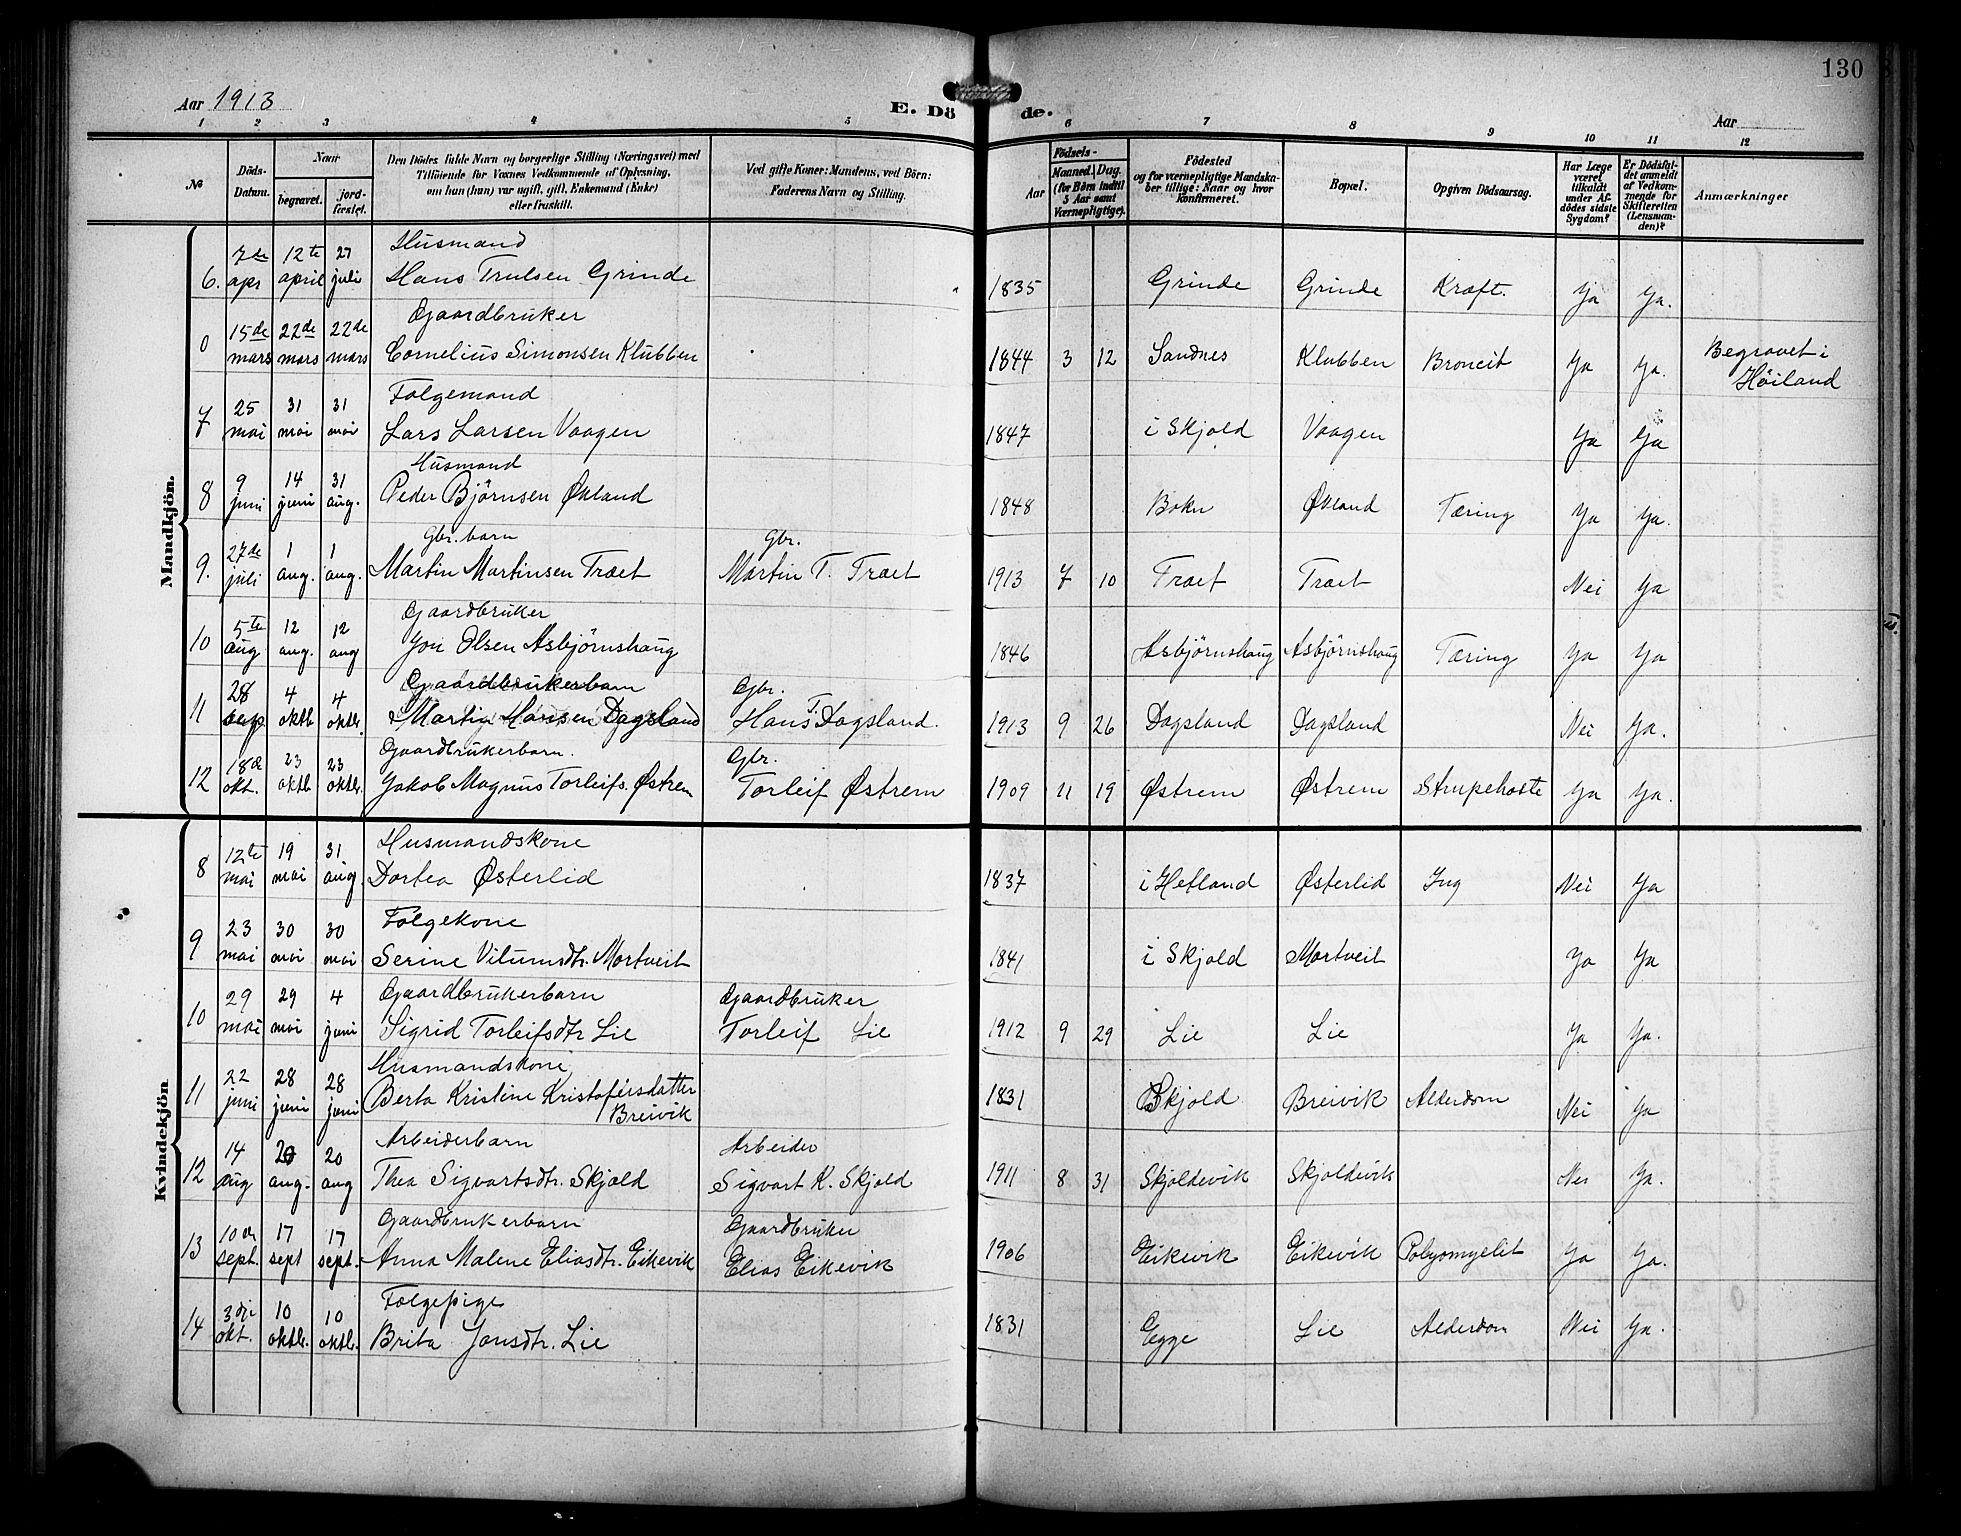 130
Aar 1913
E. Dö de.
Aar
1 2 3 4 5 6 7 8 9 10 11 12
№
Döds-Datum.
Naar
begravet.
jordfæstet.
Den Dödes fulde Navn og borgerlige Stilling (Næringsvei) med
Tilföiende for Voxnes Vedkommende af Oplysning,
om hun (han) var ugift, gift, Enkemand (Enke)
eller fraskilt.
Ved gifte Koner: Mandens, ved Börn:
Faderens Navn og Stilling.
Aar
Födsels-
Maaned. Dag.
(for Börn indtil
5 Aar samt
Værnepligtige).
Födested
og for værnepligtige Mandskaber tillige: Naar og hvor
konfirmeret.
Bopæl.
Opgiven Dödsaarsag.
Har Læge
været
tilkaldt
under Afdödes sidste
Sygdom?
Er Dödsfaldet anmeldt
af Vedkommende for
Skifteretten
(Lensmanden)?
Anmærkninger
Mandkjön.
7de 12te 27 Husmand
6. apr april juli Hans Trulsen Grinde 1835 Grinde Grinde Kræft. Ja Ja.
Gaardbruker
0 15de mars 22de mars 22de mars Cornelius Simonsen Klubben 1844 3 12 Sandnes Klubben Broncit Ja Ja. Begravet i
Höiland
Følgemand
7 25 mai 31 mai 31 mai Lars Larsen Vaagen 1847 i Skjold Vaagen Ja Ja
Husmand
8 9 juni 14 juni 31 aug. Peder Björnsen Økland 1848 Bokn Økland Tæring Ja Ja.
Gbr. barn Gbr.
9. 27de juli 1 aug. 1 aug. Martin Martinsen Træet Martin T. Træet 1913 7 10 Træet Træet Nei Ja
Gaardbruker
10 5te aug 12 aug. 12 aug Jon Olsen Asbjörnshaug 1846 Asbjörnshaug Asbjörnshaug Tæring Ja Ja
Gaardbrukerbarn Gbr.
11 28 sep 4 oktb 4 oktbr. Martin Hansen Dagsland Hans T. Dagsland. 1913 9 26 Dagsland Dagsland Nei Ja.
Gaardbrukerbarn. Gbr.
12 18de okt. 23 oktb 23 oktbr. Jakob Magnus Torleifs. Østrem Torleif Østrem 1909 11 19 Østrem Østrem Strupehoste Ja Ja.
Kvindekjön
Husmandskone
8 12te mai 19 mai 31 aug. Dortea Østerlid 1837 i Hetland Østerlid Nei Ja
Følgekone
9 23 mai 30 mai 30 mai Serine Vilumsdtr. Mortveit 1841 i Skjold Mortveit Ja Ja
Gaardbrukerbarn Gaardbruker
10 29 mai 29 mai 4 juni Sigrid Torleifsdtr Lie Torleif Lie 1912 9 29 Lie Lie Ja Ja.
Husmandskone
11 22 juni 28 juni 28 juni Berta Kristine Kristofersdatter
Breivik 1831 Skjold Breivik Alderdom Nei Ja
Arbeiderbarn Arbeider
12 14 aug 20 aug. 20 aug Thea Sigvartsdtr. Skjold Sigvart K. Skjold 1911 8 31 Skjoldevik Skjoldevik Nei Ja.
Gaardbrukerbarn Gaardbruker
13 10de sept. 17 sept 17 sept. Anna Malene Eliasdtr. Eikevik Elias Eikevik 1906 Eikevik Eikevik Polyomyelit Ja Ja.
Følgepige
14 3dje okt. 10 oktbr. 10 oktbr. Brita Jonsdtr. Lie 1831 Egge Lie Alderdom Nei Ja.